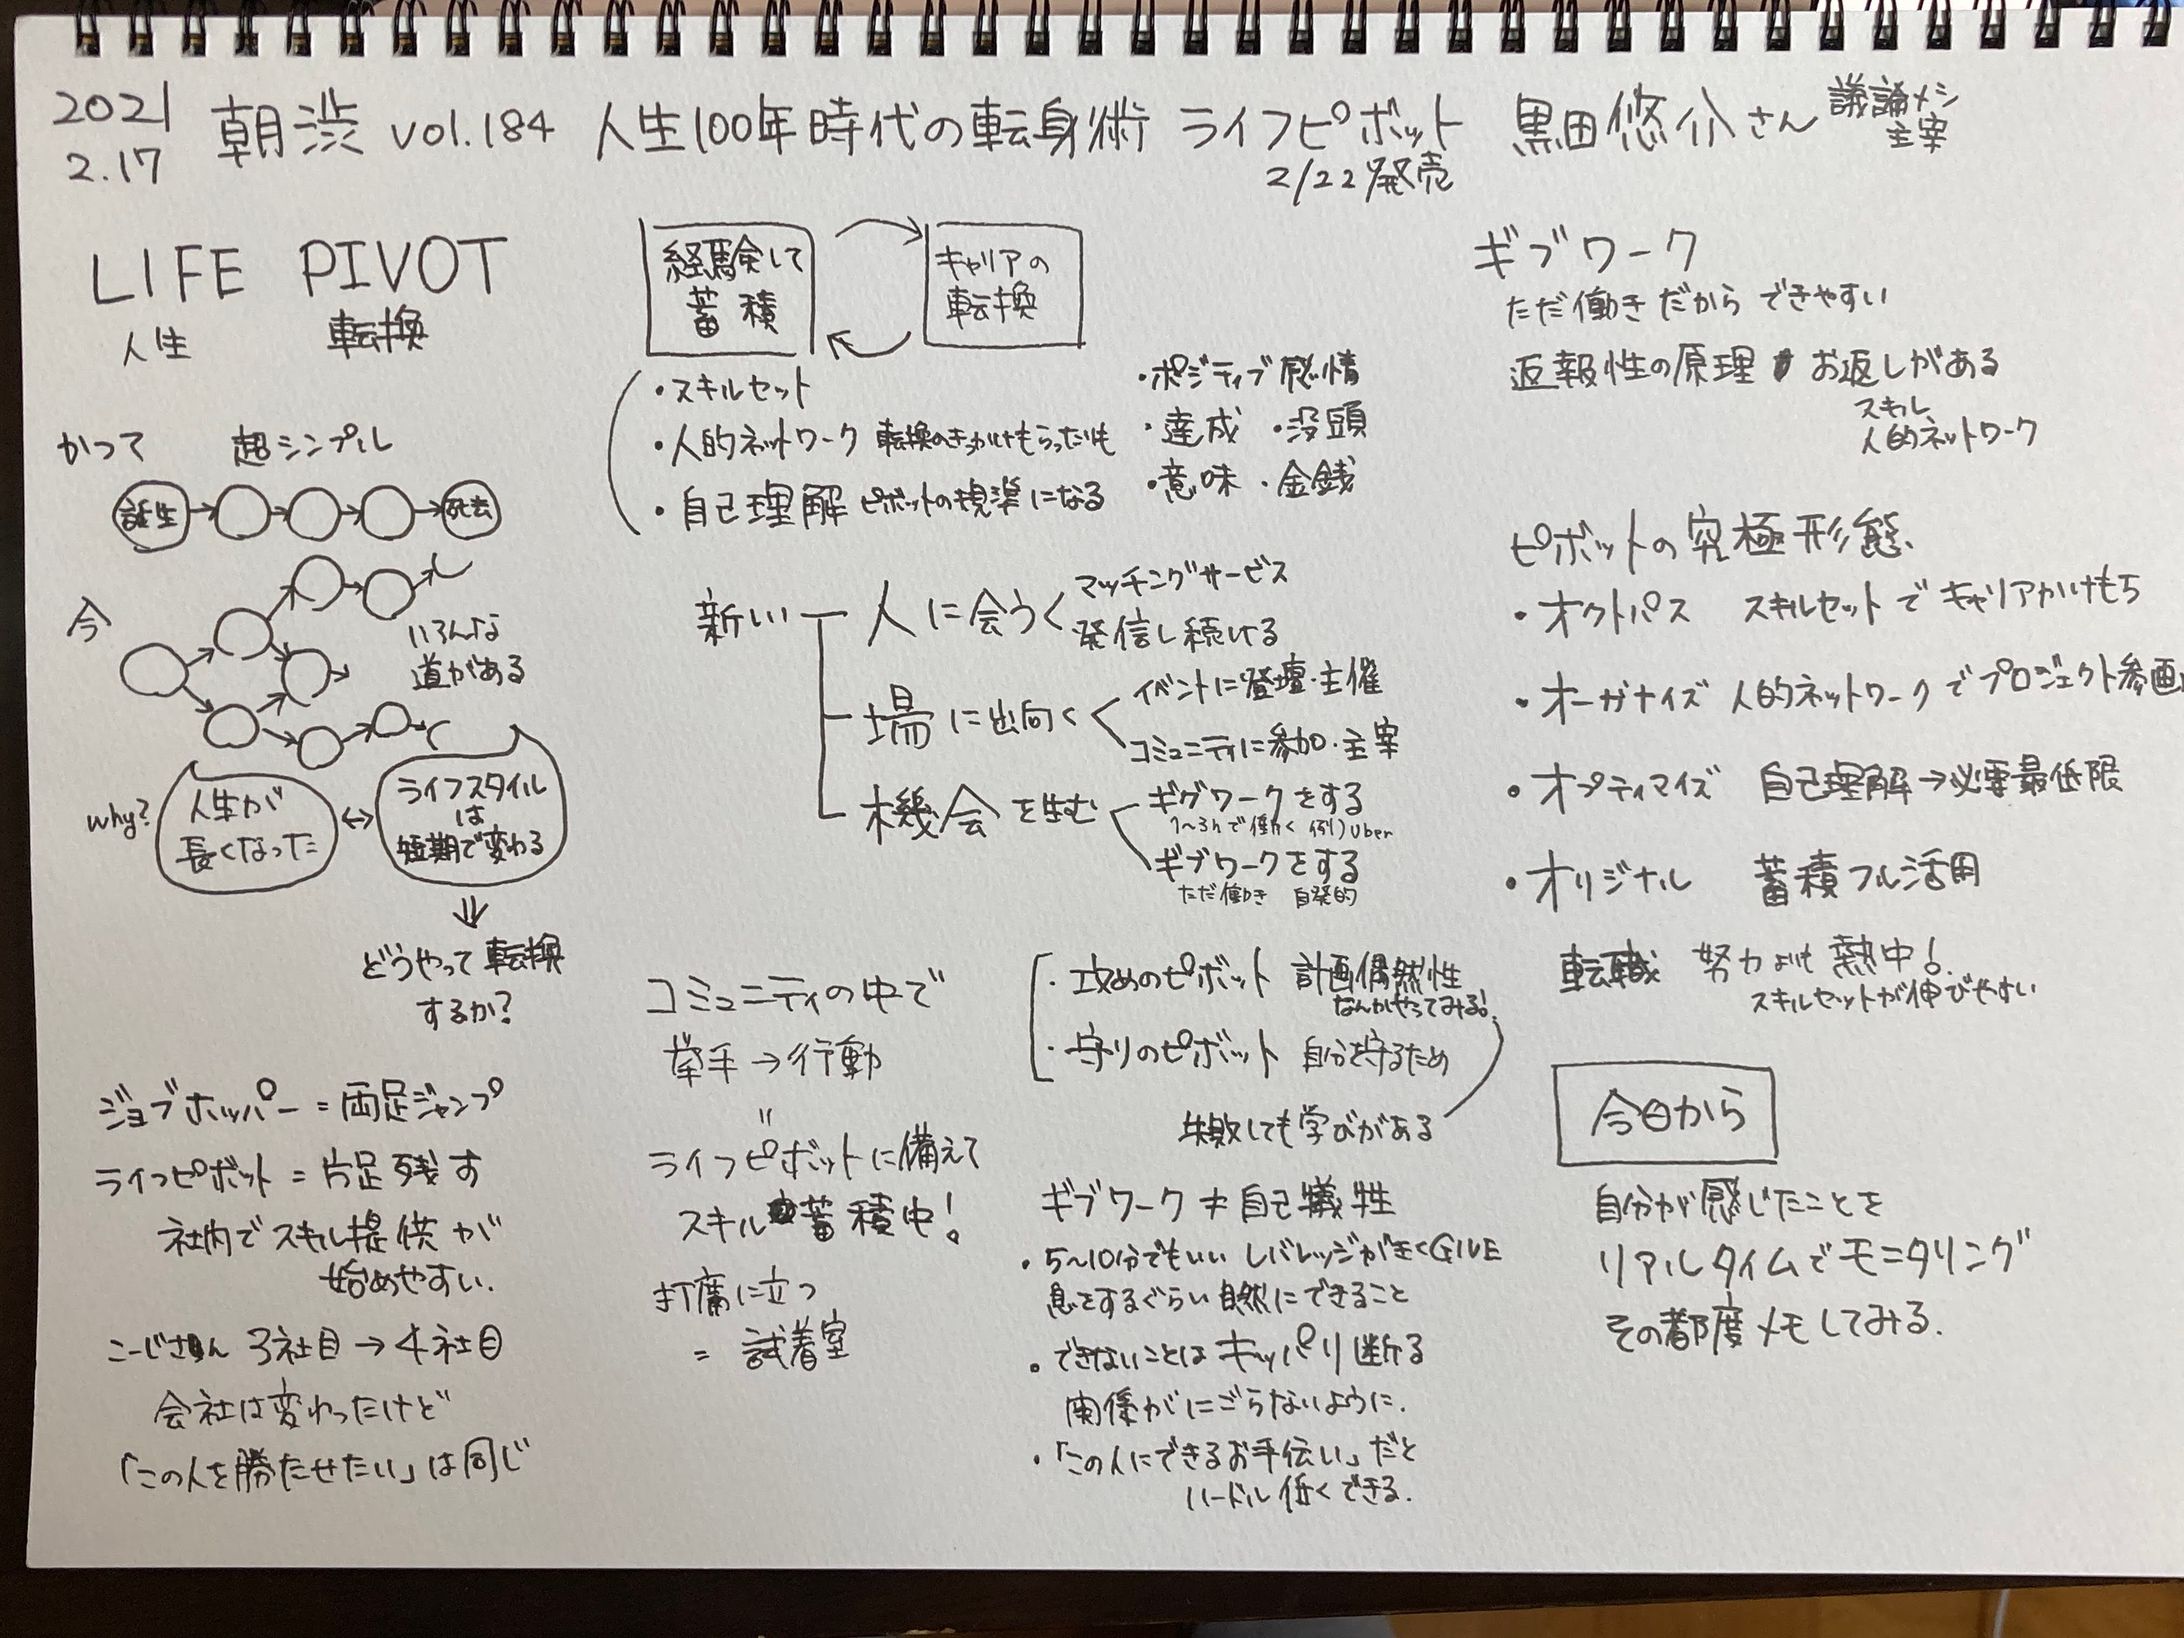 2021
2.17
朝渋 vol.184 人生100年時代の転身術 ライフピボット 黒田悠介さん 議論メシ
主宰
2/22発売
LIFE PIVOT
人生 転換
かつて 超シンプル
誕生 死去
今
いろんな
道がある
why?
人生が
長くなった
ライフスタイル
は
短期で変わる
どうやって転換
するか?
ジョブホッパー=両足ジャンプ
ライフピボット=片足残す
社内でスキル提供が
始めやすい.
こーじさん 3社目→4社目
会社は変わったけど
「この人を勝たせたい」は同じ
経験して
蓄積
キャリアの
転換
・スキルセット
・人的ネットワーク 転換のきっかけもらったりも
・自己理解 ピボットの規準になる
・ポジティブ感情
・達成 ・没頭
・意味 ・金銭
新しい 人に会う
マッチングサービス
発信し続ける
場に出向く
イベントに登壇・主催
コミュニティに参加・主宰
機会を生む
ギグワークをする
1〜3hで働く 例)Uber
ギブワークをする
ただ働き 自発的
コミュニティの中で
挙手→行動
=
ライフピボットに備えて
スキル蓄積中!
打席に立つ
= 試着室
・攻めのピボット 計画偶然性
なんかやってみる!
・守りのピボット 自分を守るため
失敗しても学びがある
ギブワーク≠自己犠牲
・5〜10分でもいい レバレッジがきくGIVE
息をするぐらい自然にできること
・できないことはキッパリ断る
関係がにごらないように.
・「この人にできるお手伝い」だと
ハードル低くできる.
ギブワーク
ただ働きだからできやすい
返報性の原理 お返しがある
スキル
人的ネットワーク
ピボットの究極形態、
・オクトパス スキルセットでキャリアかけもち
・オーガナイズ 人的ネットワークでプロジェクト参画
・オプティマイズ 自己理解→必要最低限
・オリジナル 蓄積フル活用
転職 努力よりも熱中!
スキルセットが伸びやすい
今日から
自分が感じたことを
リアルタイムでモニタリング
その都度メモしてみる.